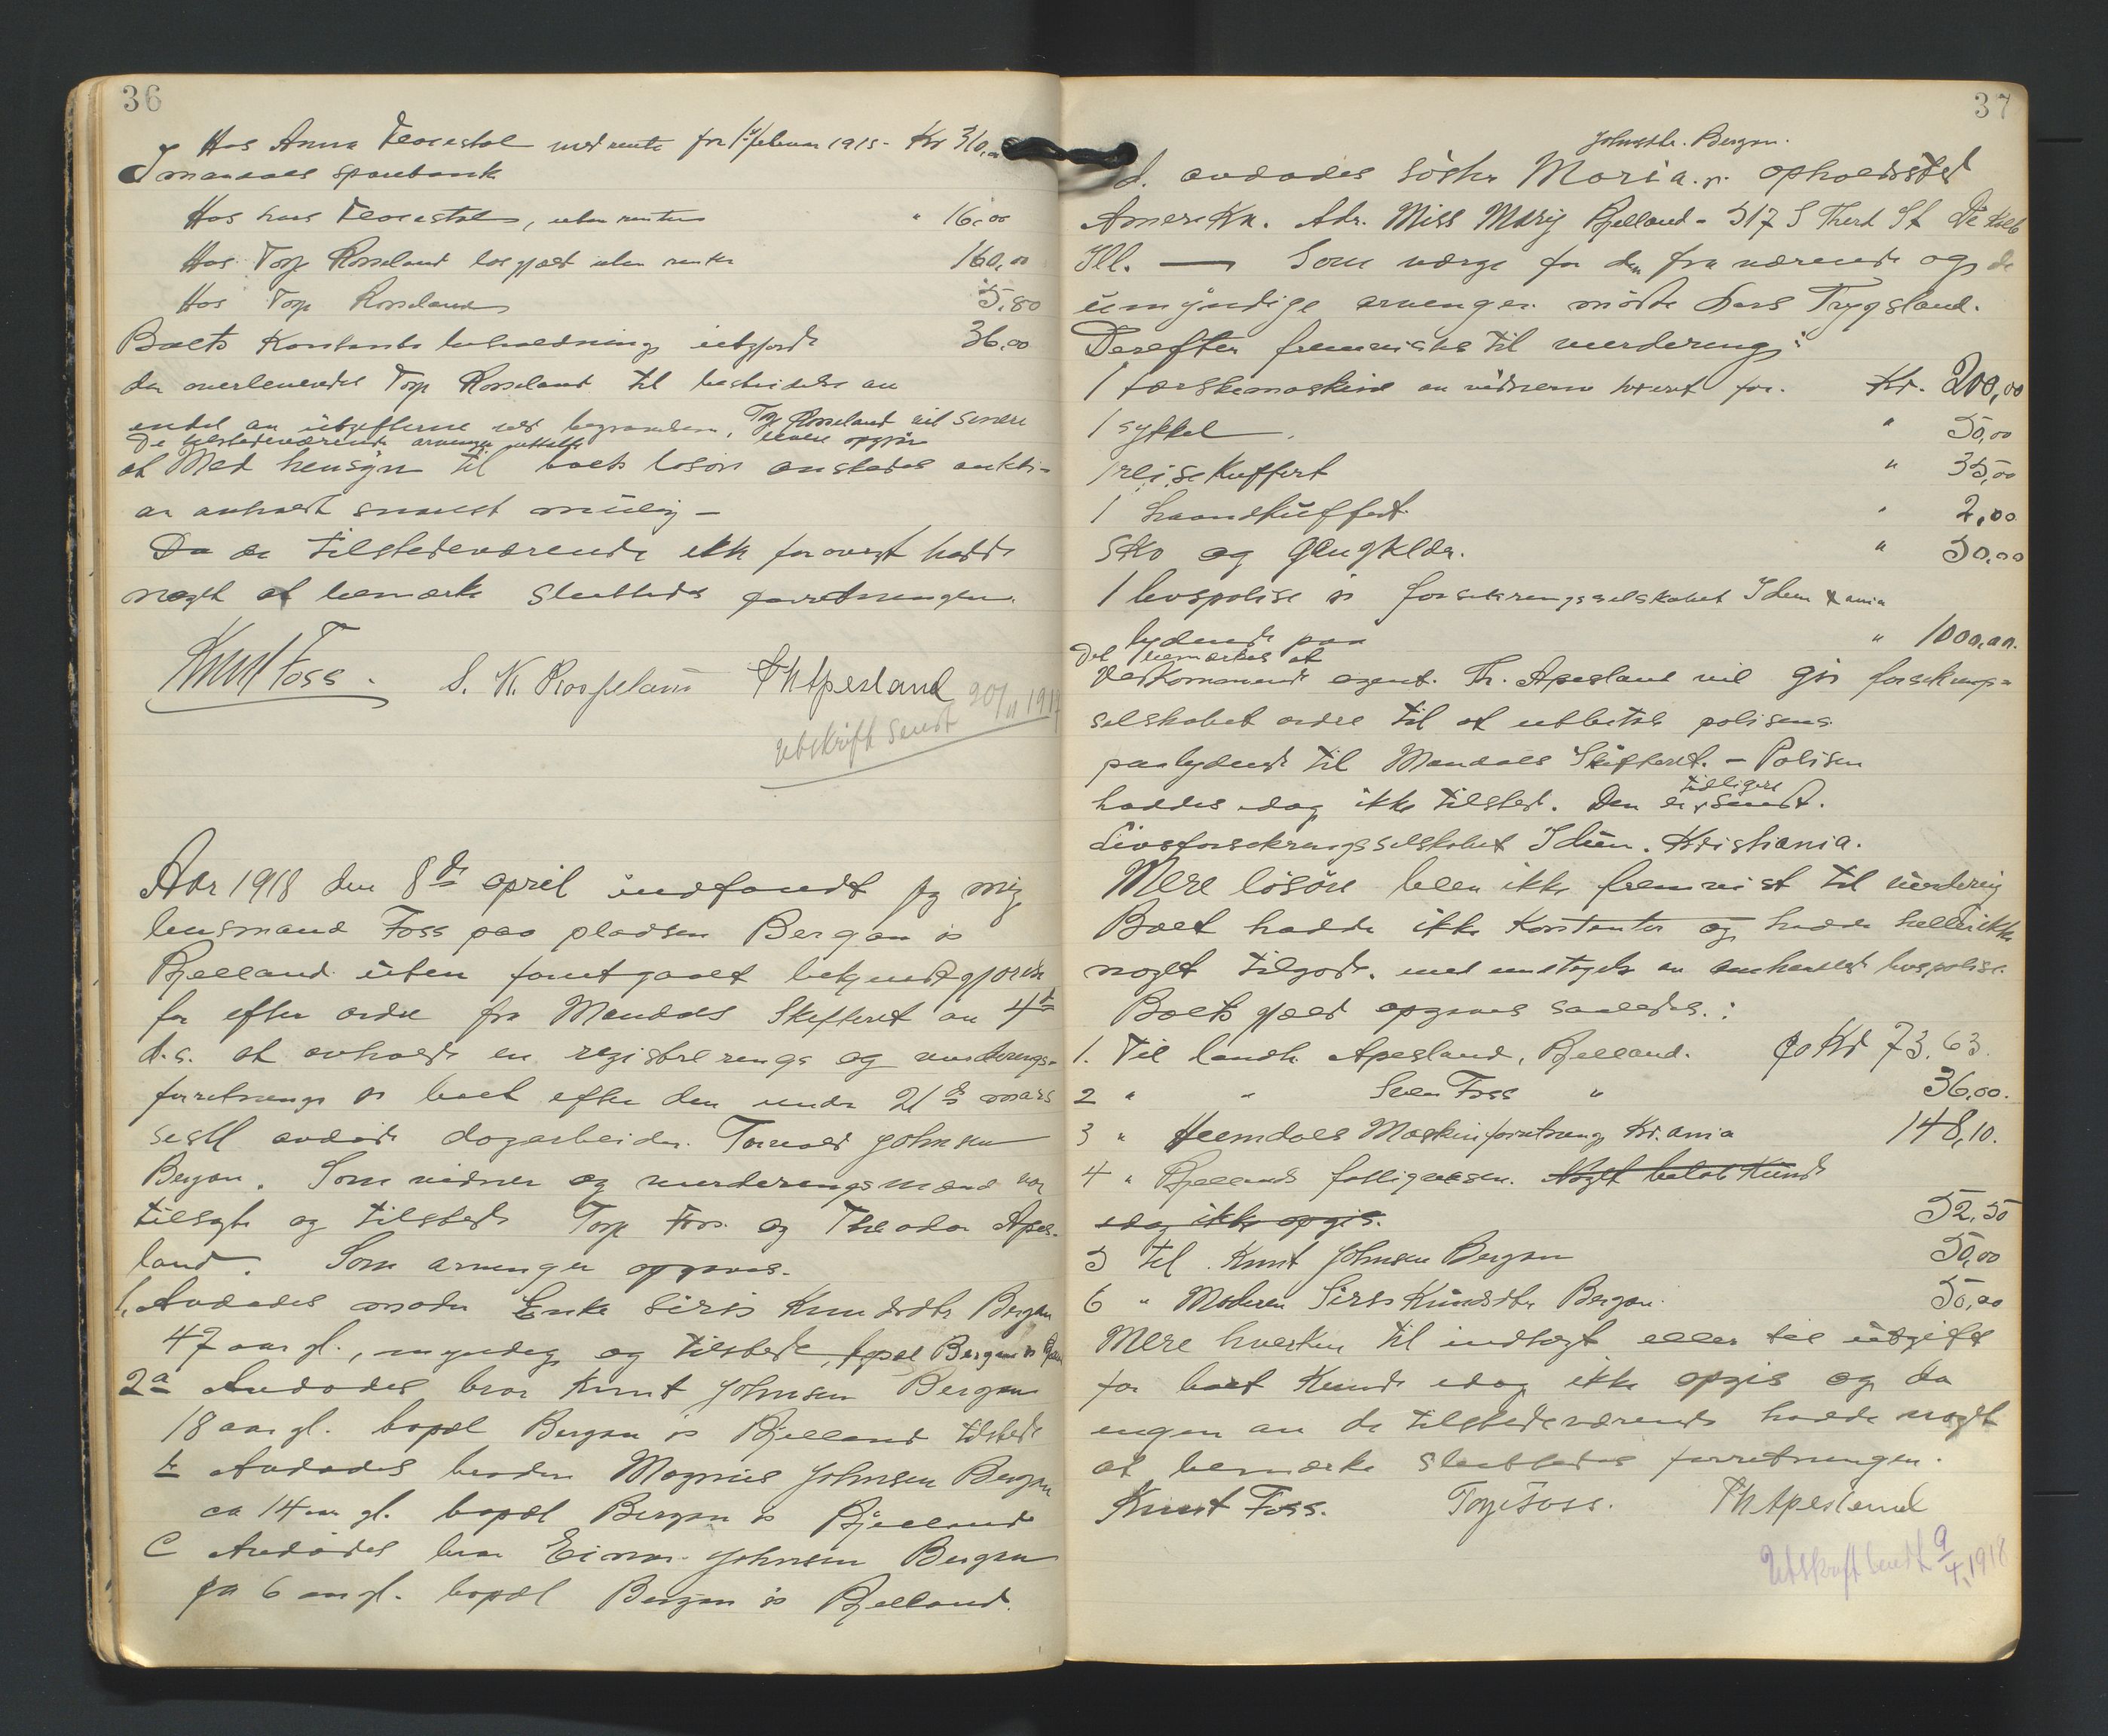 36
Hos Anna med rente fra 1ste februar 1915 - Kr 310,00
I mandals sparebank
Hos Lars , uten renter " 16,00
Hos Torje Rosseland løsgjæld uten renter 160,00
Hos Torje Rosseland 5,80
Boets Kontante beholdning utgjorde 36,00
den overlevende Torje Rosseland til bestridelse av
endel av utgifterne ved begravelsen. Torje Rosseland vil senere
levere opgjør
De tilstedeværende arvinger uttalte
at Med hensyn til boets løsøre ønskedes aukti-
on avholdt snarest mulig -
Da de tilstedeværende ikke forøvrigt hadde
noget at bemærke sluttedes forretningen.
Knut Foss. S. K. Rosseland Th Apesland
Utskrift sendt 20/11 1917
Aar 1918 den 8de april indfandt jeg mig
lensmand Foss paa pladsen Bergan i
Bjelland uten forutgaaet bekjendtgjørelse
for efter ordre fra Mandals Skifteret av 4de
d.s. at avholde en registrerings og vurderings-
forretning i boet efter den under 21de mars
sistl avdøde dagarbeider Torvald Johnsen
Bergan. Som vidner og vurderingsmænd var
tilsagte og tilstede Torje Foss og Theodor Apes-
land. Som arvinger opgaves.
1. Avdødes moder Enke Siris Knudsdtr Bergan
47 aar gl., myndig og tilstede, bopæl Bergan i Bjelland
2a Avdødes bror Knut Johnsen Bergan
18 aar gl. bopæl Bergan i Bjelland tilstede
b Avdødes broder Magnus Johnsen Bergan
ca 14 aar gl. bopæl Bergan i Bjelland
c Avdødes bror Einar Johnsen Bergan
ca 6 aar gl. bopæl Bergan i Bjelland.
37
Johnsdtr. Bergan.
d. avdødes søster Maria. opholdssted
Amerika. Adr. Miss Mary Bjelland - 317 S Third St De Kalb
Ill. — Som værge for den fraværende og de
umyndige arvinger møtte Lars Trygsland.
Derefter fremvistes til vurdering:
1 tærskemaskine av vidnerne takseret for. Kr. 200,00
1 sykkel " 50,00
1 reisekuffert " 35,00
1 haandkuffert " 2,00
Sko og gangklær. " 50,00
1 livspolise i forsikringsselskabet Idun Kr.ania
lydende paa " 1000,00.
Det bemærkes at
Vedkommende agent. Th. Apesland vil gi forsikrings-
selskabet ordre til at utbetale polisens
paalydende til Mandals Skifteret. - Polisen
haddes idag ikke tilstede. Den er tidligere sendt.
Livsforsikringsselskabet Idun. Kristiania.
Mere løsøre blev ikke fremvist til vurdering
Boet hadde ikke Kontanter og hadde heller ikke
noget tilgode. med undtagelse av anmeldt livspolise.
Boets gjæld opgaves saaledes. :
1. Til landh. Apesland, Bjelland. Kr 73,63.
2 " " Sven Foss " 36,00.
3 " Heemdals Maskinforretning Kr.ania 148,10.
4 " Bjellands fattigvæsen. Noget beløb kunde
idag ikke opgis. 52,50
5 til Knut Johnsen Bergan 50,00
6 " Moderen Siris Knudsdtr Bergan. 50,00
Mere hverken til indtægt eller til utgift
for boet Kunde idag ikke opgis og da
ingen av de tilstedeværende hadde noget
at bemærke sluttedes forretningen.
Knut Foss. Torje Foss. Th Apesland
Utskrift sendt 9/4 1918